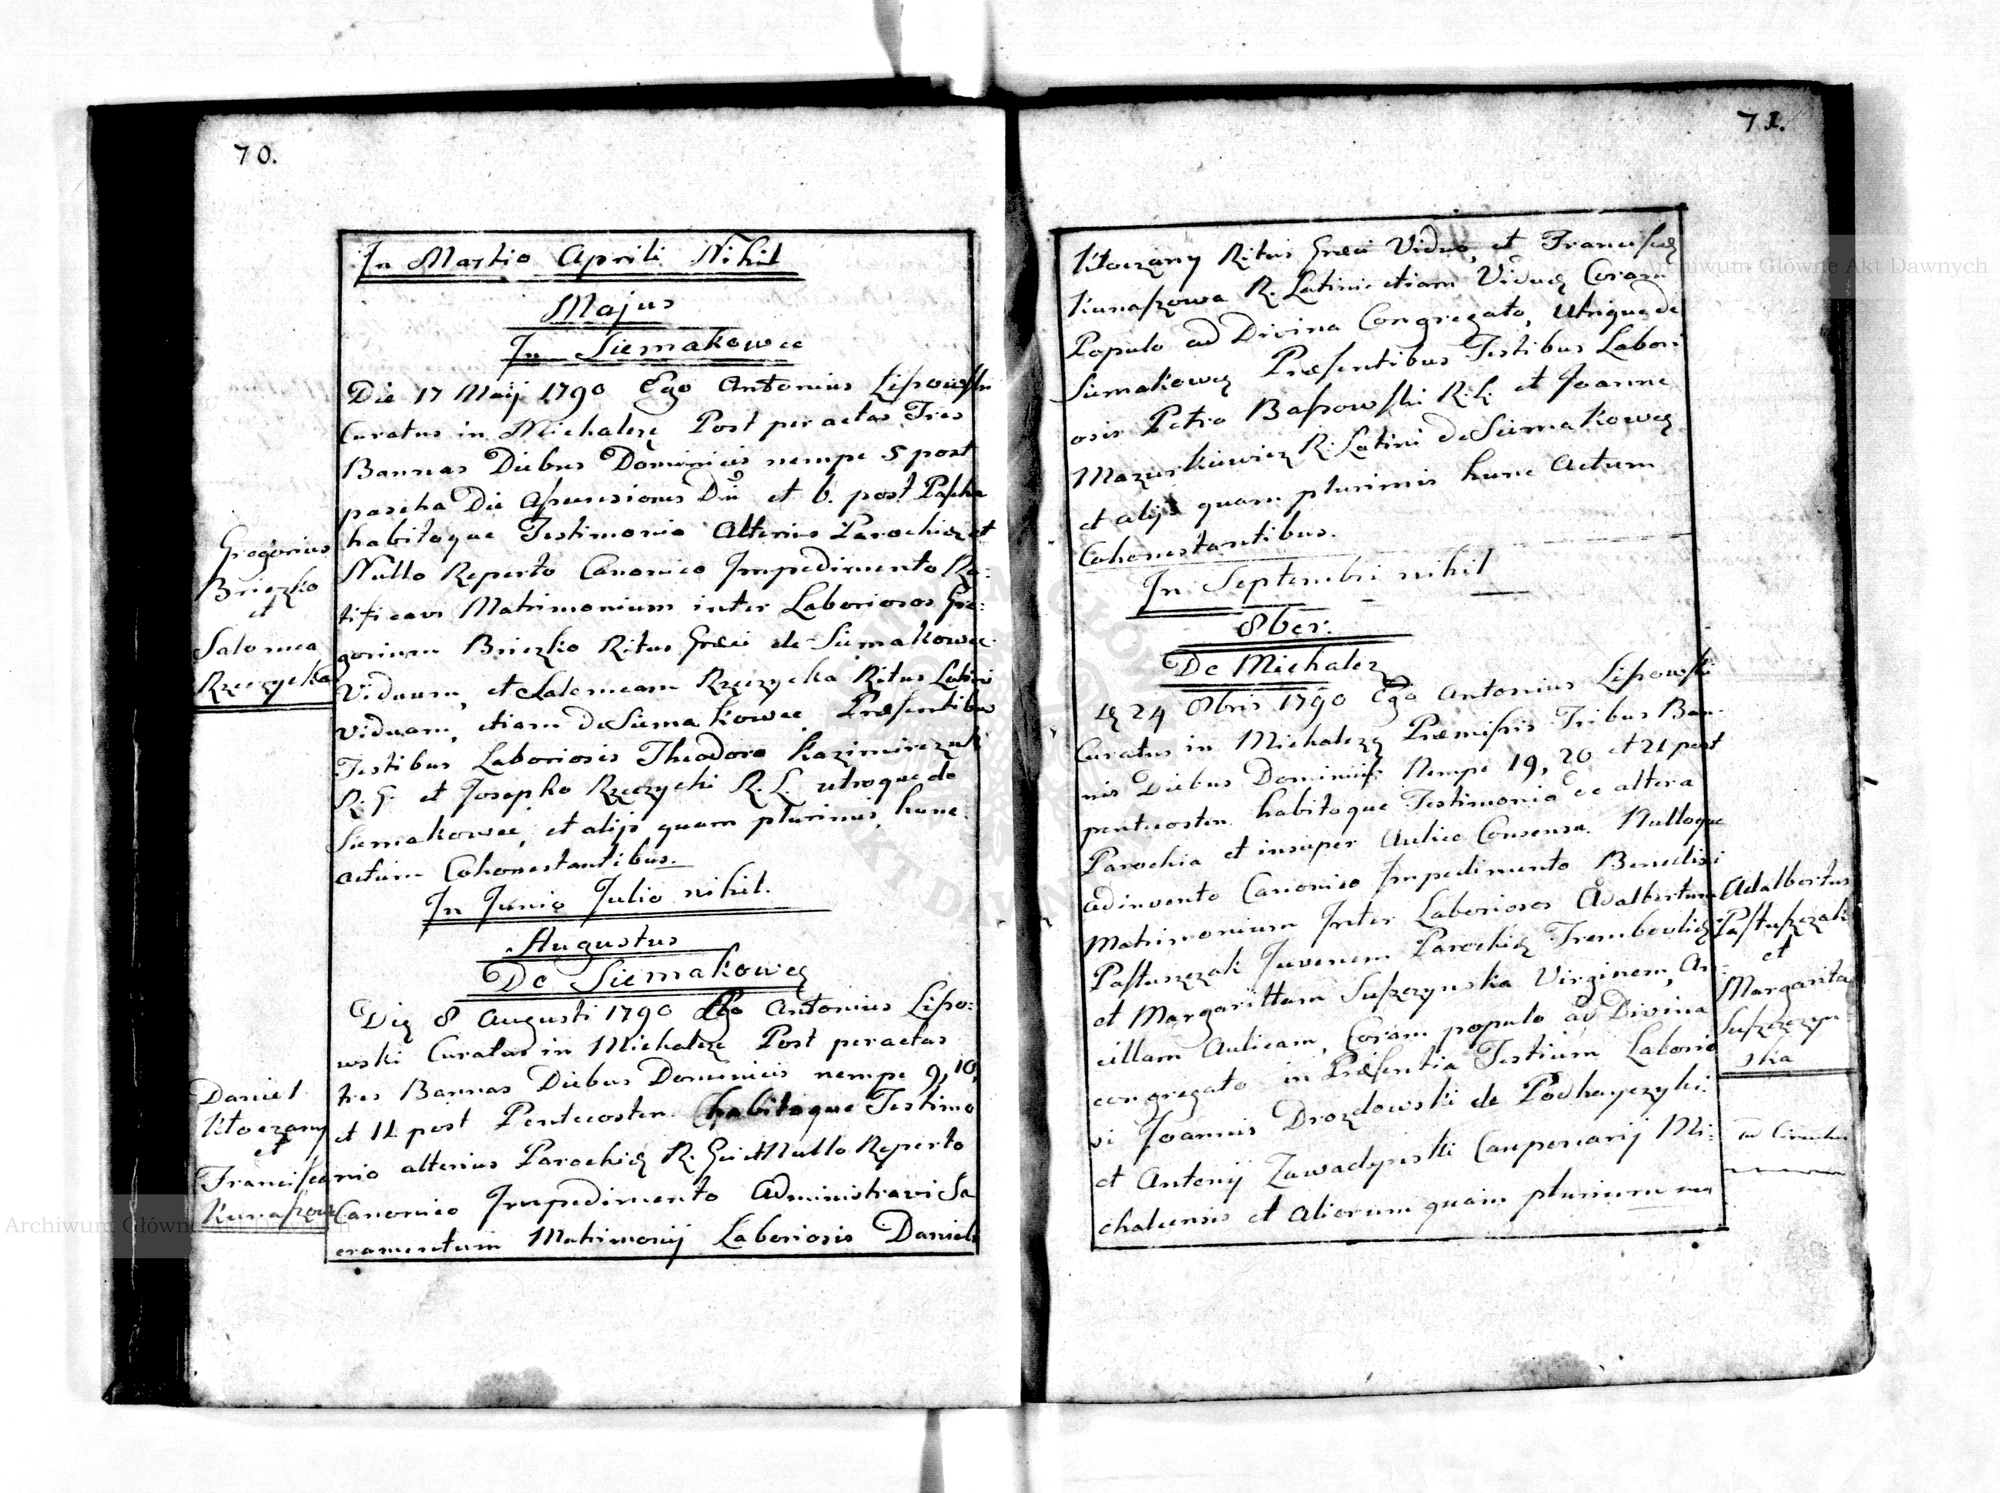 70.
In Martio Aprili Nihil
Majus
In Siemakowce
Die 17 Maij 1790 Ego Antonius Lipowski
Curatus in Michalczę Post peractas Tres
Bannas Diebus Dominicis nempe 5 post
pascha Die Ascensionis Dni et 6. post Pascha
habitoque Testimonio Alterius Parochiæ et
Nullo Reperto Canonico Impedimento Ra-
tificavi Matrimonium inter Laboriosos Gre-
gorium Briezko Ritus Græci de Siemakowce
Viduum, et Salomeam Rzeczycka Ritus Latini
Viduam, etiam de Siemakowce Præsentibus
Testibus Laboriosis Theodoro Kazimirczuk
R. G. et Josepho Rzeczycki R. L. utroque de
Siemakowce, et alijs quam plurimis hunc
actum Cohonestantibus.
In Junio Julio nihil.
Augustus
De Siemakowcę
Dię 8 Augusti 1790 Ego Antonius Lipo-
wski Curatus in Michalczę Post peractas
tres Bannas Diebus Dominicis nempe 9, 10,
et 11 post Pentecosten habitoque Testimo
nio alterius Parochię R. Gci et Nullo Reperto
Canonico Impedimento Administravi Sa
cramentum Matrimonij Laboriosis Danieli
Gregorius
Briezko
et
Salomea
Rzeczycka
Daniel
Kłoczany
et
Francisca
Kunaszowa
71.
Kłoczany Ritus Græci Viduo, et Franciscę
Kunaszowa R. Latini etiam Viduę Coram
Populo ad Divina Congregato, Utrique de
Siemakowcę Præsentibus Testibus Labori
osis Petro Bassowski R. L. et Joanne
Mazurkiewicz R. Latini de Siemakowcę
et alijs quam plurimis hunc Actum
Cohonestantibus.
In Septembri nihil
8ber.
De Michalcz
24 8bris 1790 Ego Antonius Lipowski
Curatus in Michalczę Præmissis Tribus Ban-
nis Diebus Dominicis Nempe 19, 20 et 21 post
pentecosten habitoque Testimonio de altera
Parochia et insuper Aulico Consensu. Nulloque
adinvento Canonico Impedimento Benedixi
Matrimonium Inter Laboriosos Adalbertum
Pastuszzak Juvenem Parochię Trembovlię
et Margarittam Suszczynska Virginem, An-
cillam Aulicam, Coram populo ad Divina
congregato in Præsentia Testium Laborio
vi Joannis Drozdowski de Podhayczyki
et Antonij Zawadynski Cauponarij Mi-
chalcensis et Aliorum quam plurium
Adalbertus
Pastuszzak
et
Margarita
Suszczyn-
ska
Archiwum Główne Akt Dawnych
Archiwum Główne Akt Dawnych